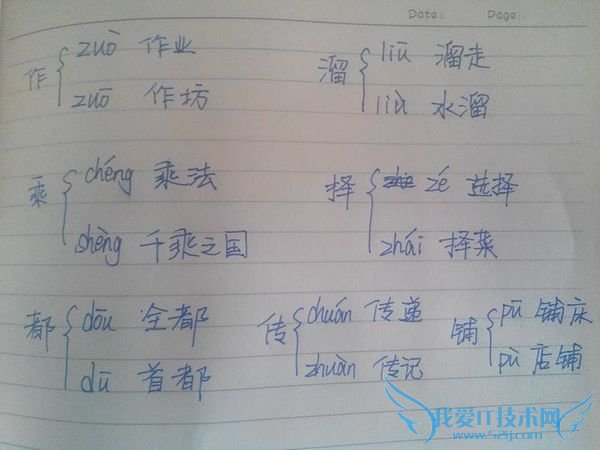 Date: Page:
作 zuò 作业
zuō 作坊
溜 liū 溜走
liù 水溜
乘 chéng 乘法
shèng 千乘之国
择 zé 选择
zhái 择菜
都 dōu 全都
dū 首都
传 chuán 传递
zhuàn 传记
铺 pū 铺床
pù 店铺
我爱IT技术网
www.52ij.com